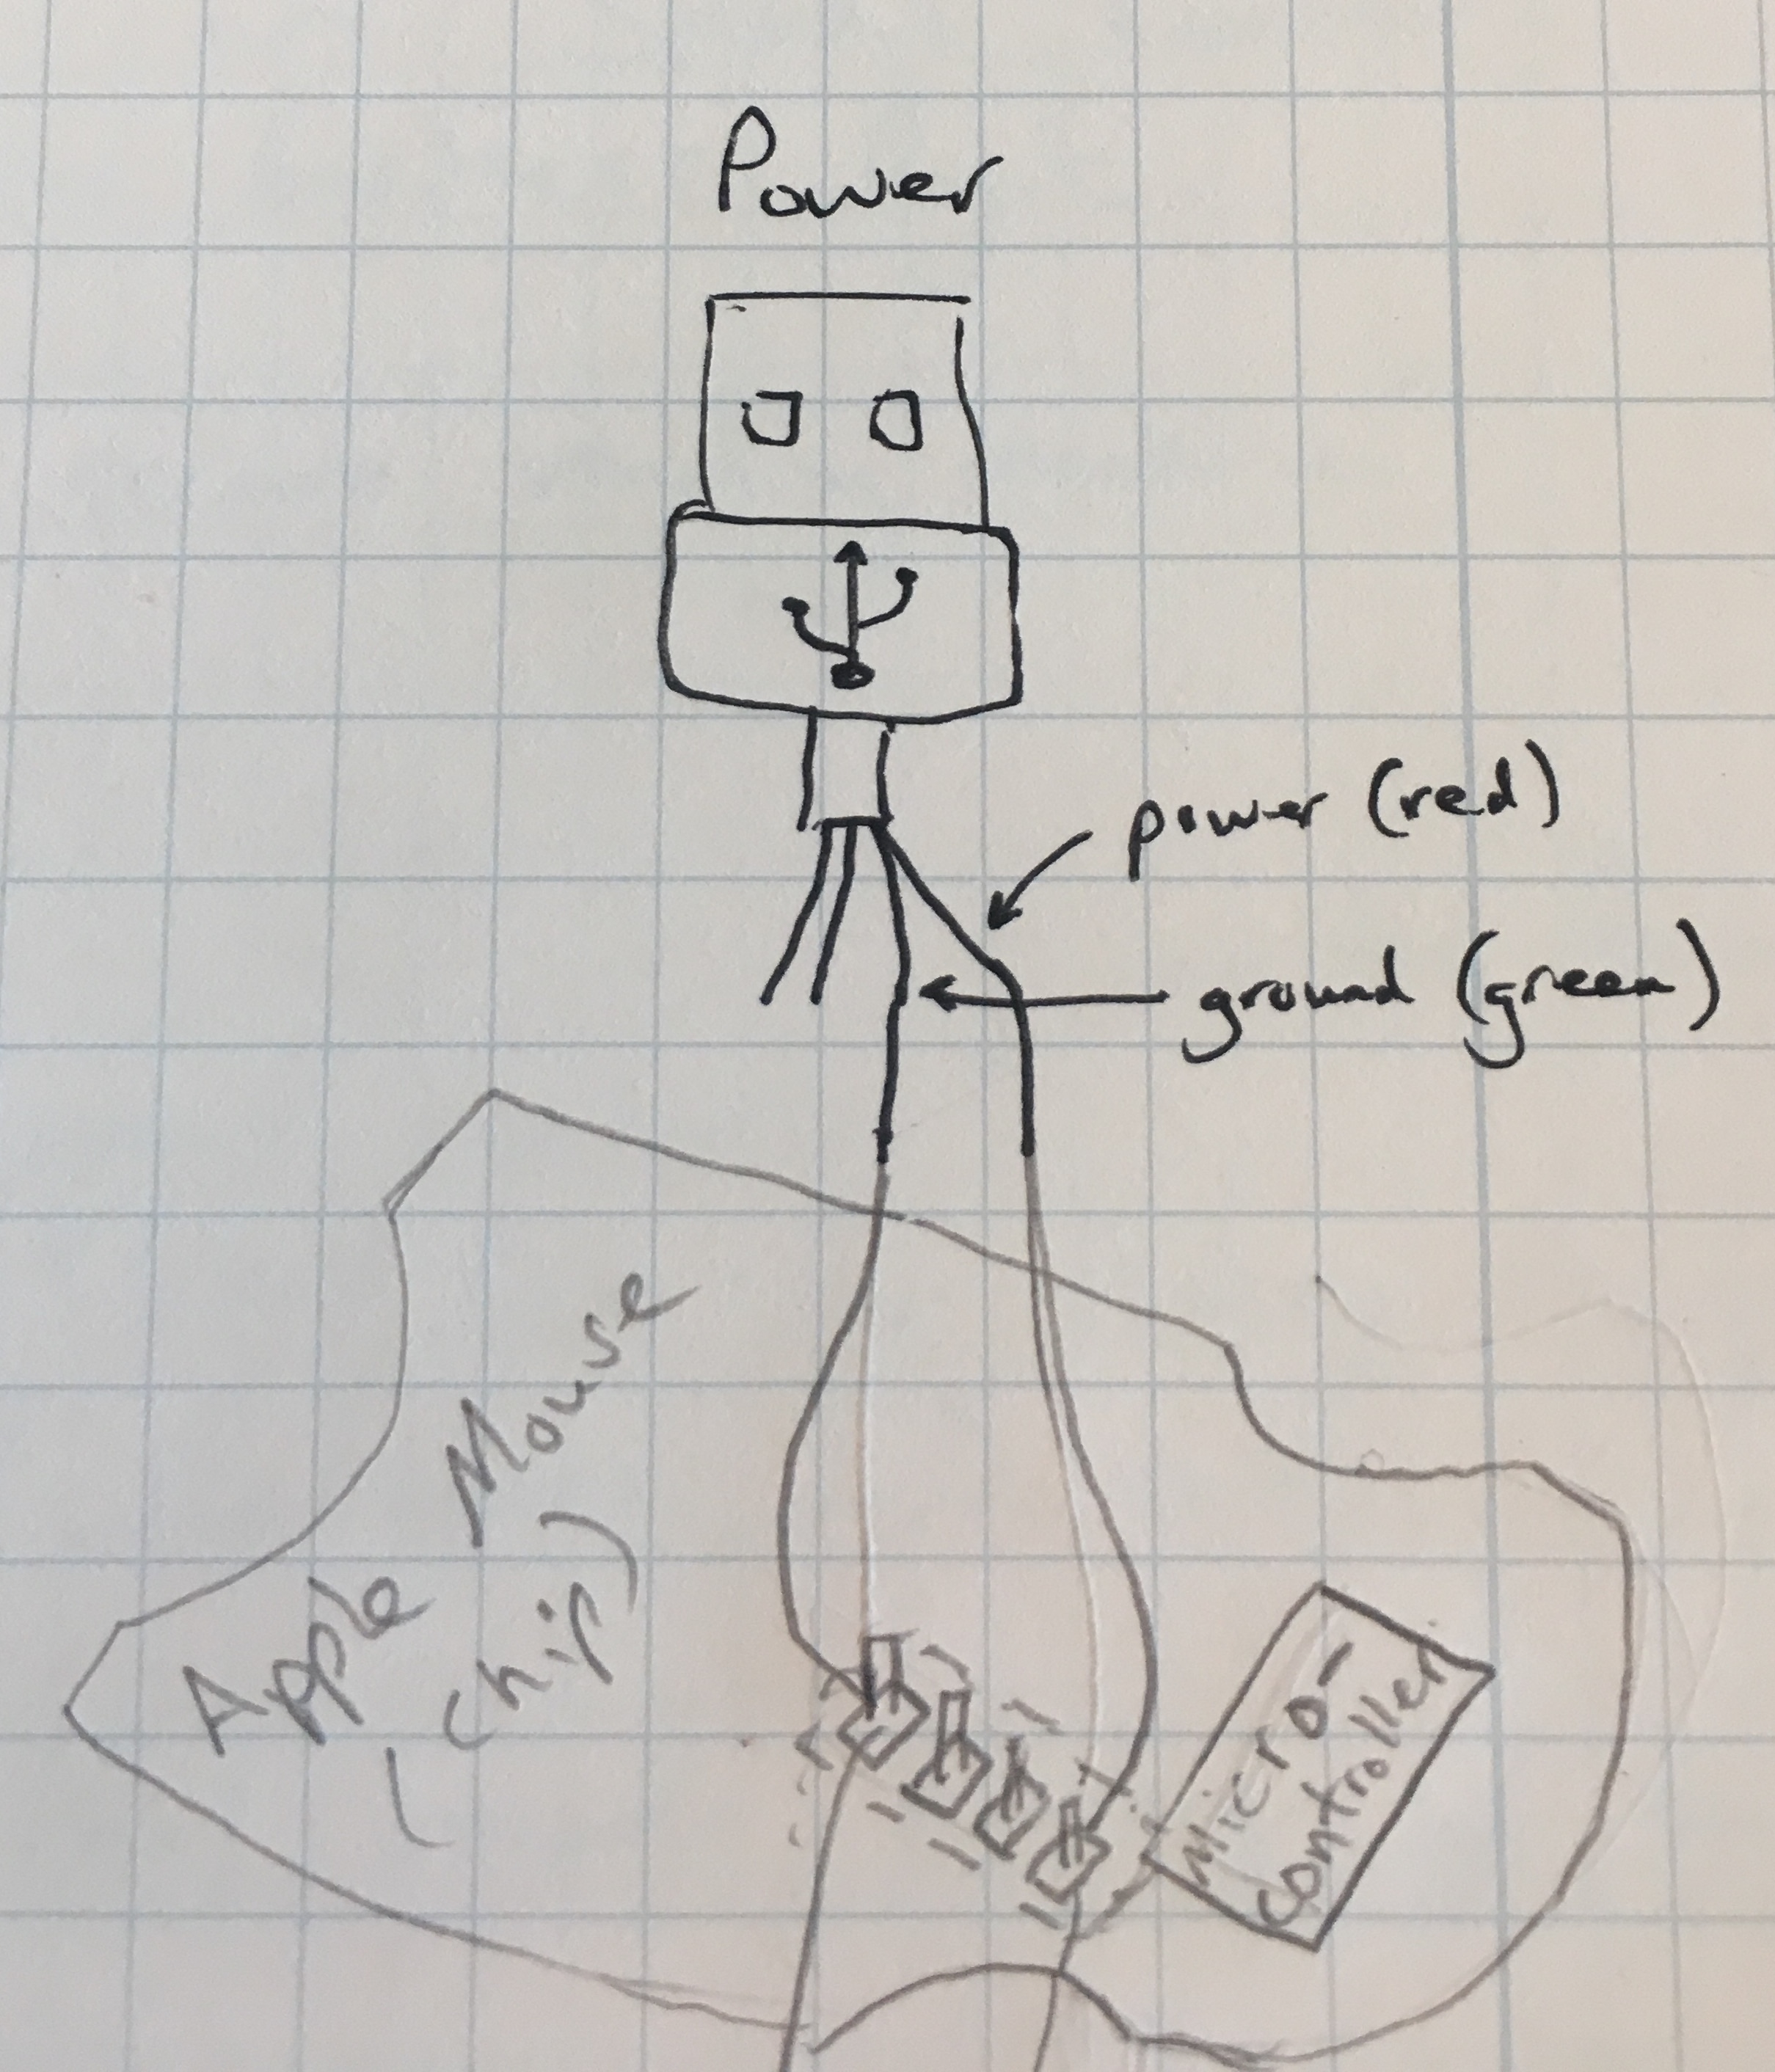 Power
power (red)
ground (green)
Apple Mouse
(chip)
Micro-
controller